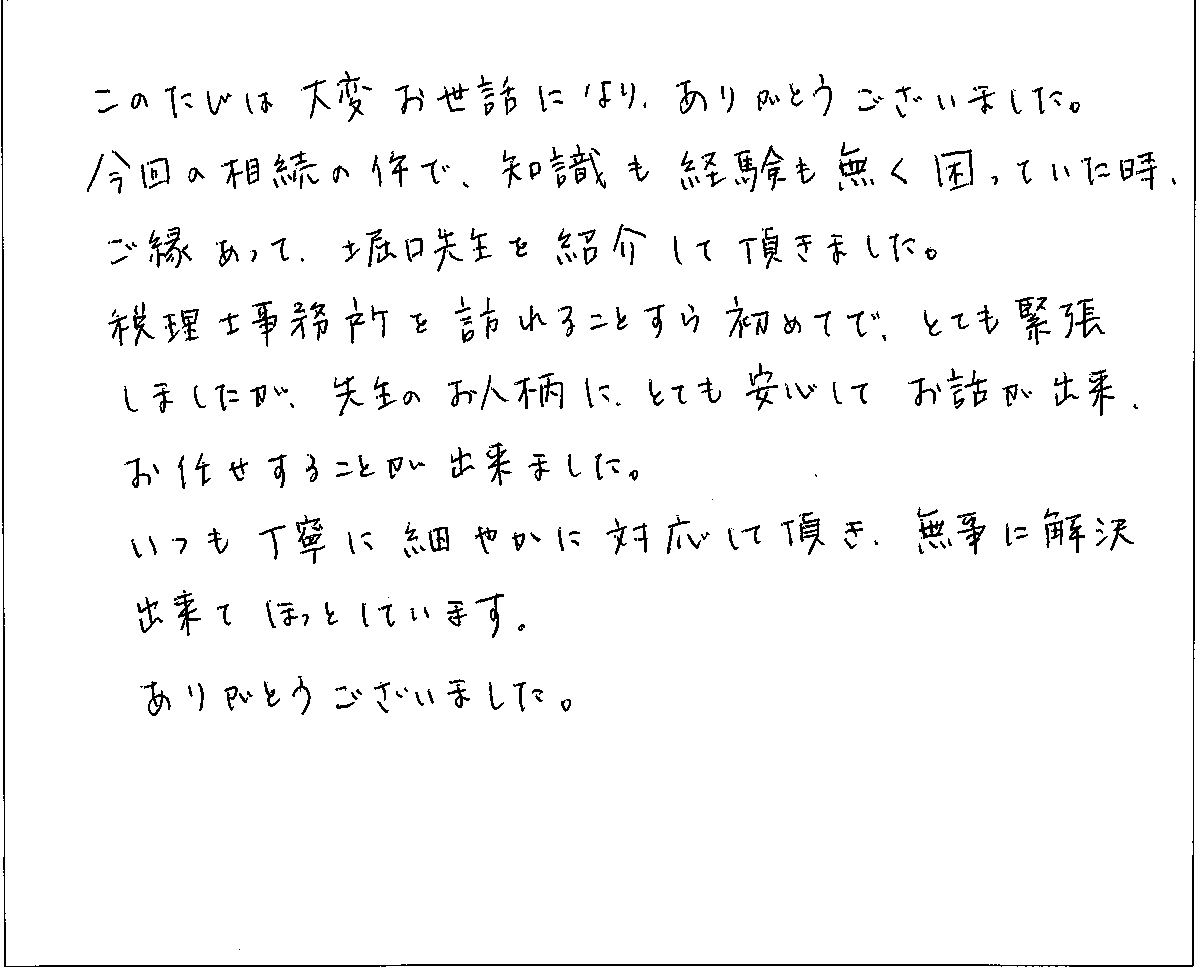 このたびは 大変 お世話になり、ありがとうございました。
今回の相続の件で、知識も経験も無く困っていた時、
ご縁あって、堀口先生を紹介して頂きました。
税理士事務所を訪れることすら初めてで、とても緊張
しましたが、先生のお人柄に、とても安心してお話が出来、
お任せすることが出来ました。
いつも丁寧に細やかに対応して頂き、無事に解決
出来てほっとしています。
ありがとうございました。